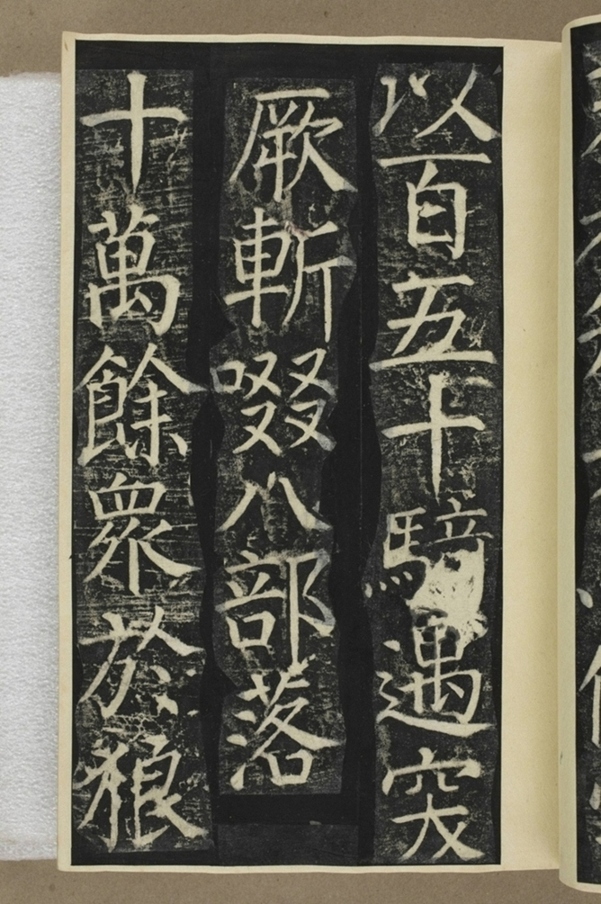 以百五十騎遇突
厥斬啜八部落
十萬餘眾於狼